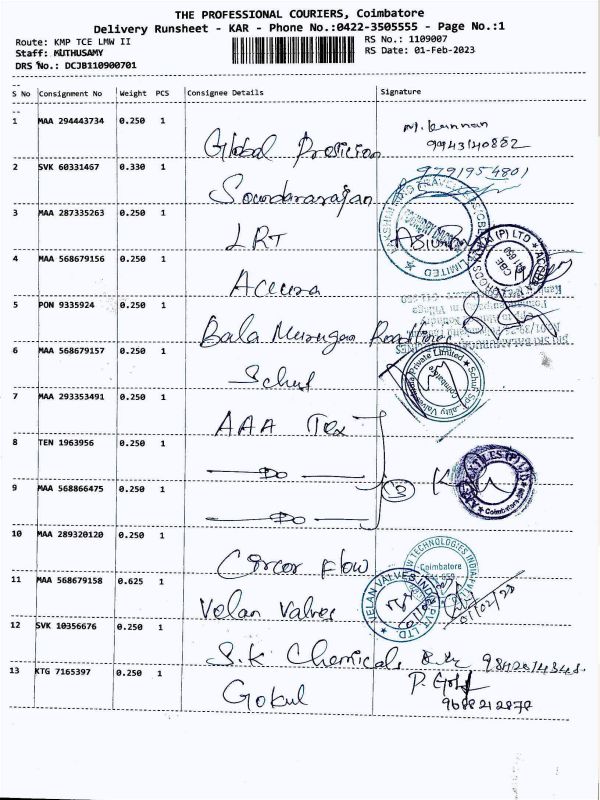 THE PROFESSIONAL COURIERS, Coimbatore
Delivery Runsheet - KAR - Phone No.:0422-3505555 - Page No.:1
Route: KMP TCE LMW II
RS No.: 1109007
Staff: MUTHUSAMY
RS Date: 01-Feb-2023
DRS No.: DCJB110900701
S No Consignment No Weight PCS Consignee Details Signature
1 MAA 294443734 0.250 1 Global M. Kannan
9943140882
2 SVK 60331467 0.330 1 Soundararajan 9791954801
3 MAA 287335263 0.250 1 LRT
4 MAA 568679156 0.250 1 Accura
5 PON 9335924 0.250 1 Bala Murugan Roadlines
6 MAA 568679157 0.250 1 Schuf
7 MAA 293353491 0.250 1 AAA Tex
8 TEN 1963956 0.250 1 Do
9 MAA 568866475 0.250 1 Do
10 MAA 289320120 0.250 1 Circor Flow
11 MAA 568679158 0.625 1 Velan Valves 01/02/23
12 SVK 10356676 0.250 1 S.K Chemicals
13 KTG 7165397 0.250 1 Gokul P.
9688212878